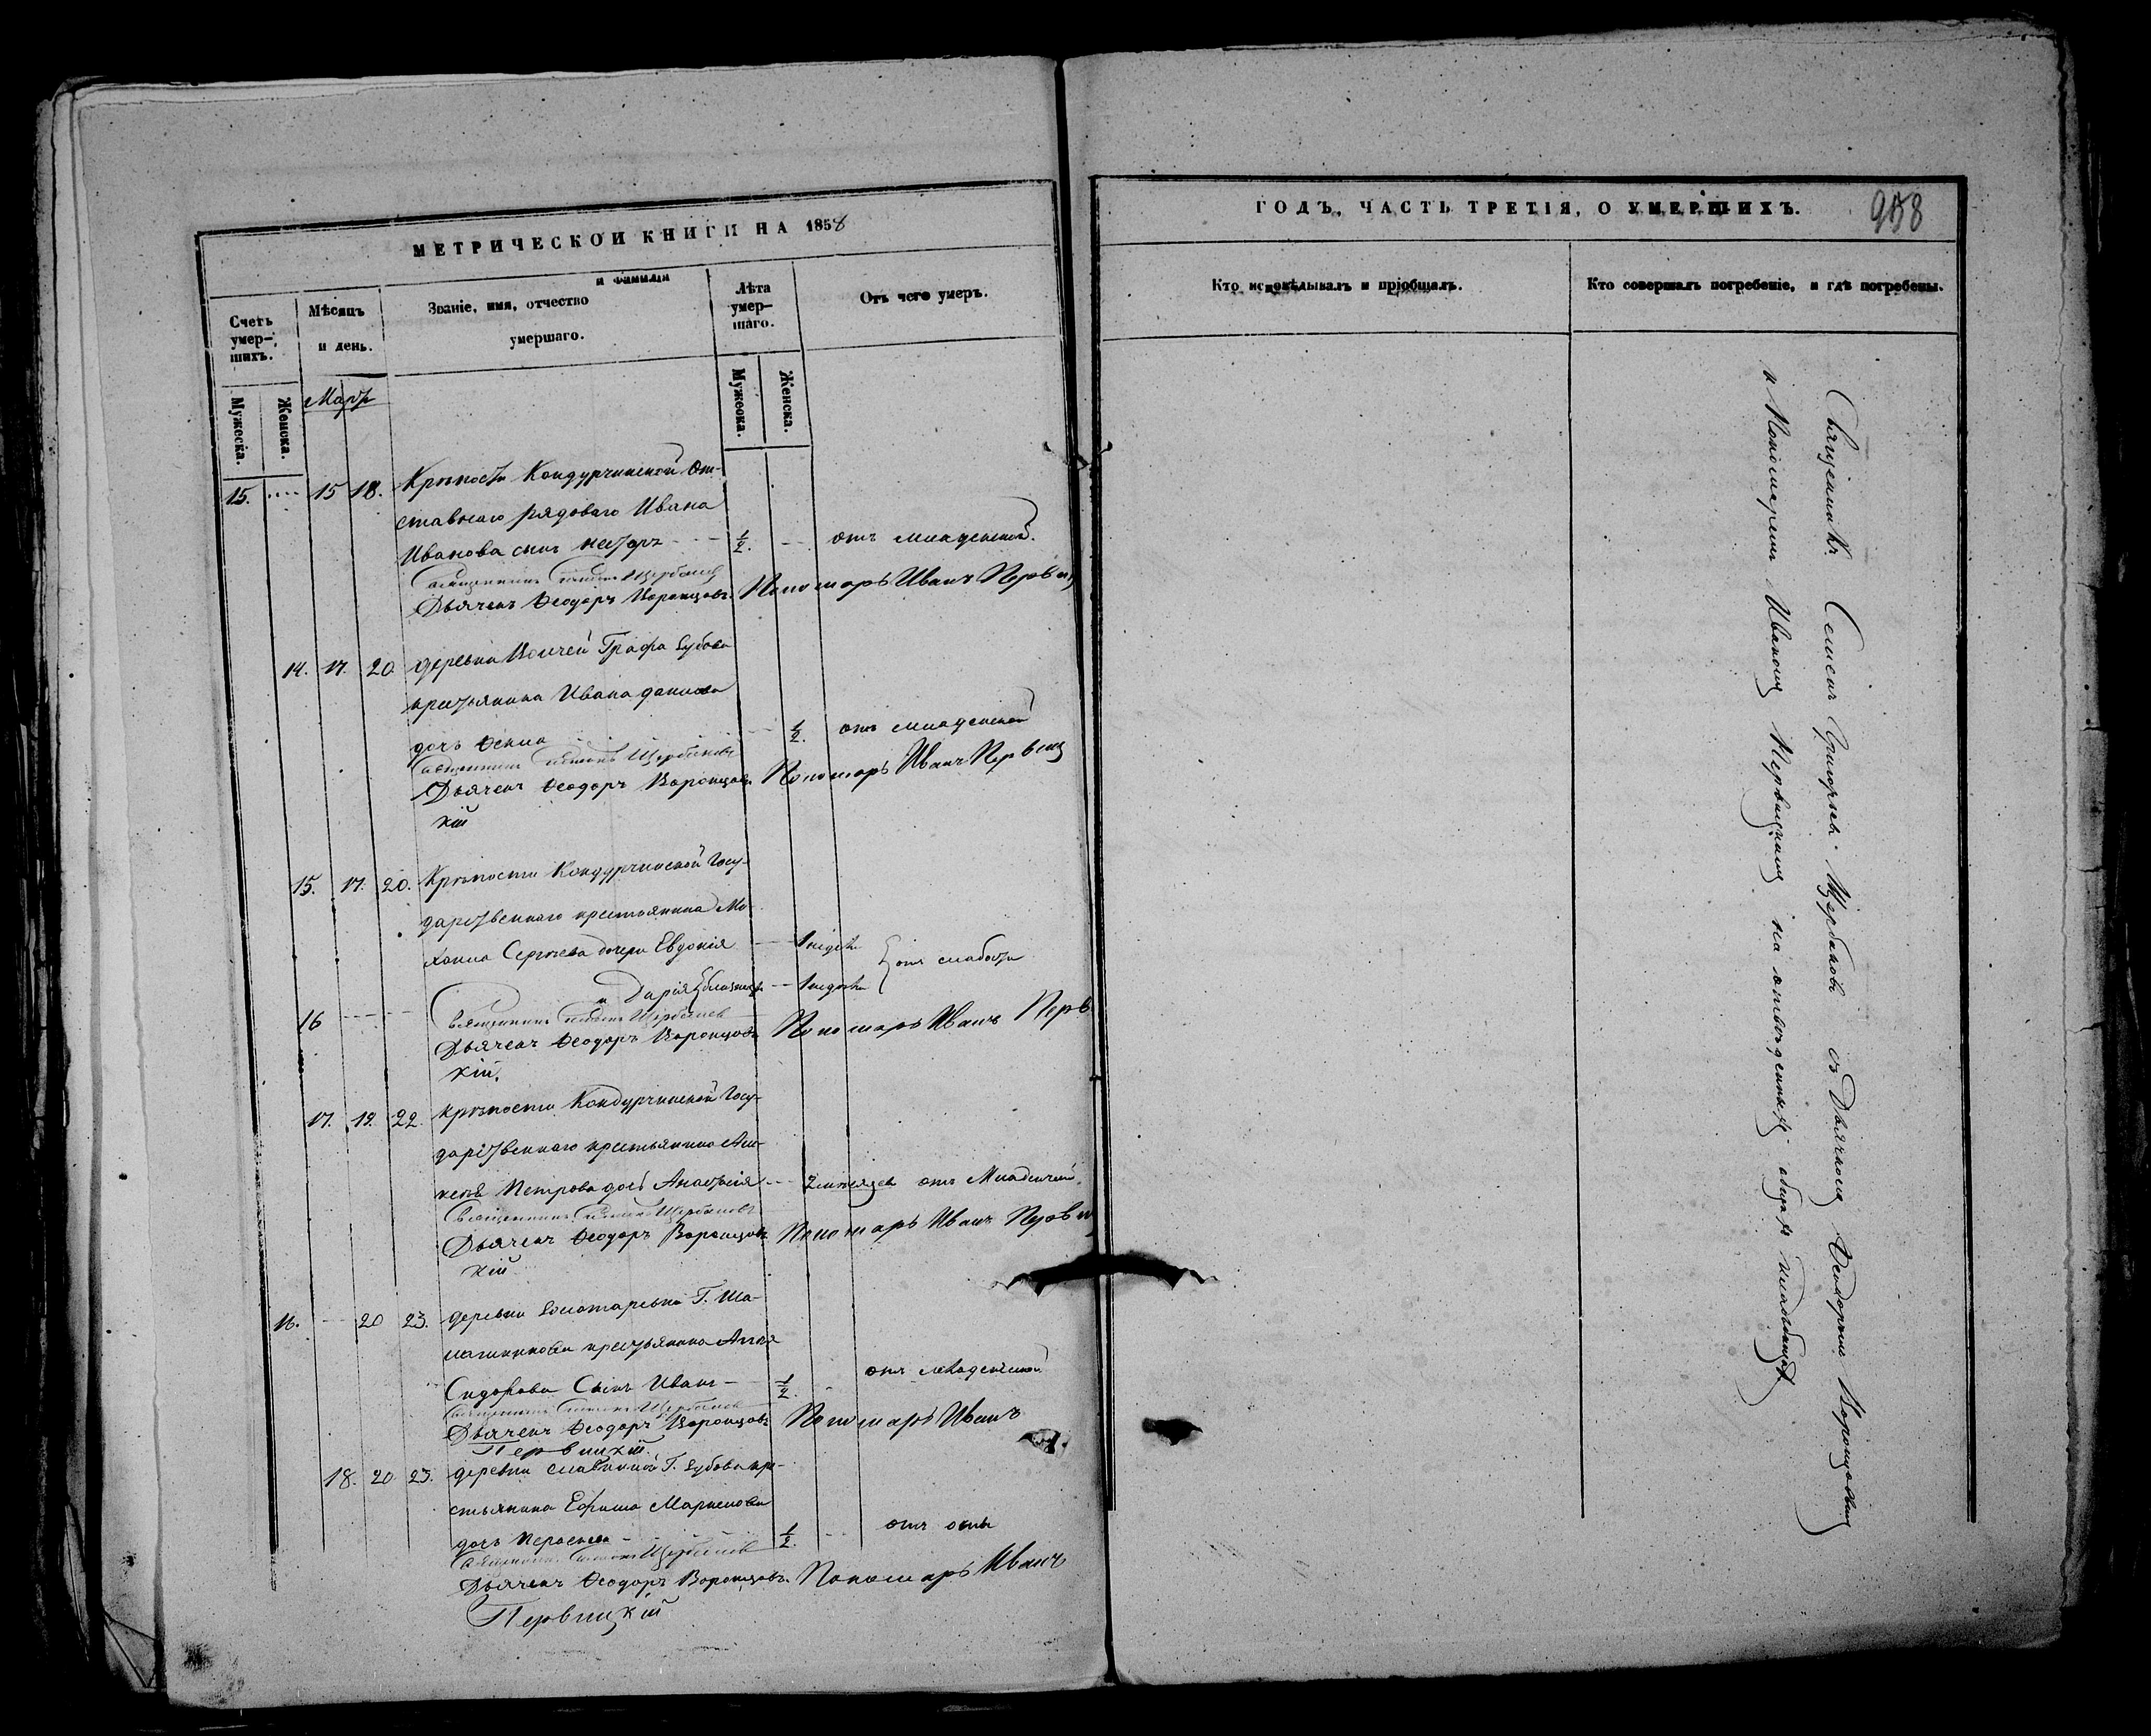 МЕТРИЧЕСКОЙ КНИГИ НА 1858
Счетъ умер-шихъ.
Мѣсяцъ и день.
Званіе, имя, отчество и фамилія умершаго.
Лѣта умер-шаго.
Отъ чего умеръ.
Мужеска.
Женска.
Мартъ
Мужеска.
Женска.
15. 15 18. Крѣпости Кондурчинской От-
ставнаго рядоваго Ивана
Иванова сынъ Несторъ 1/2. отъ младенской.
Священникъ Симеонъ Щербаковъ
Дьячекъ Ѳеодоръ Воронцовъ. Пономарь Иванъ Первиц
14. 17. 20 деревни Графа Зубова
крестьянина Ивана
дочь 1/2. отъ младенской
Священникъ Симеонъ Щербаковъ
Дьячекъ Ѳеодоръ Воронцовъ. Пономарь Иванъ Первиц
кій
15. 17. 20. Крѣпости Кондурчинской Госу-
дарственнаго крестьянина
Сергѣева дочери Евдокія 1 недѣли
и Дарія близнецы 1 недѣли отъ слабости
16
Священникъ Симеонъ Щербаковъ
Дьячекъ Ѳеодоръ Воронцовъ Пономарь Иванъ Перв
кій.
17. 19. 22. Крѣпости Кондурчинской Госу-
дарственнаго крестьянина
Петрова дочь Анастасія 2 мѣсяцев отъ Младенчской.
Священникъ Симеонъ Щербаковъ
Дьячекъ Ѳеодоръ Воронцовъ Пономарь Иванъ Первиц
кій
16. 20 23. деревни Г. Ша-
крестьянина
Сидорова Сынъ Иванъ 1/2. отъ младенчской
Священникъ Симеонъ Щербаковъ
Дьячекъ Ѳеодоръ Воронцовъ Пономарь Иванъ
Первицкій.
18. 20 23. деревни Г. Зубова кре-
стьянина Ефима
дочь 1/2. отъ оспы
Священникъ Симеонъ Щербаковъ
Дьячекъ Ѳеодоръ Воронцовъ. Пономарь Иванъ
Первицкій
ГОДЪ, ЧАСТЬ ТРЕТІЯ, О УМЕРШИХЪ.
958
Кто исповѣдывалъ и пріобщалъ.
Кто совершалъ погребеніе, и гдѣ погребены.
Священникъ Семенъ Григорьевъ Щербаковъ съ Дьячкомъ Ѳеодоромъ Воронцовымъ
и Пономаремъ Иваномъ Первицкимъ на отведенныхъ общихъ кладбищахъ